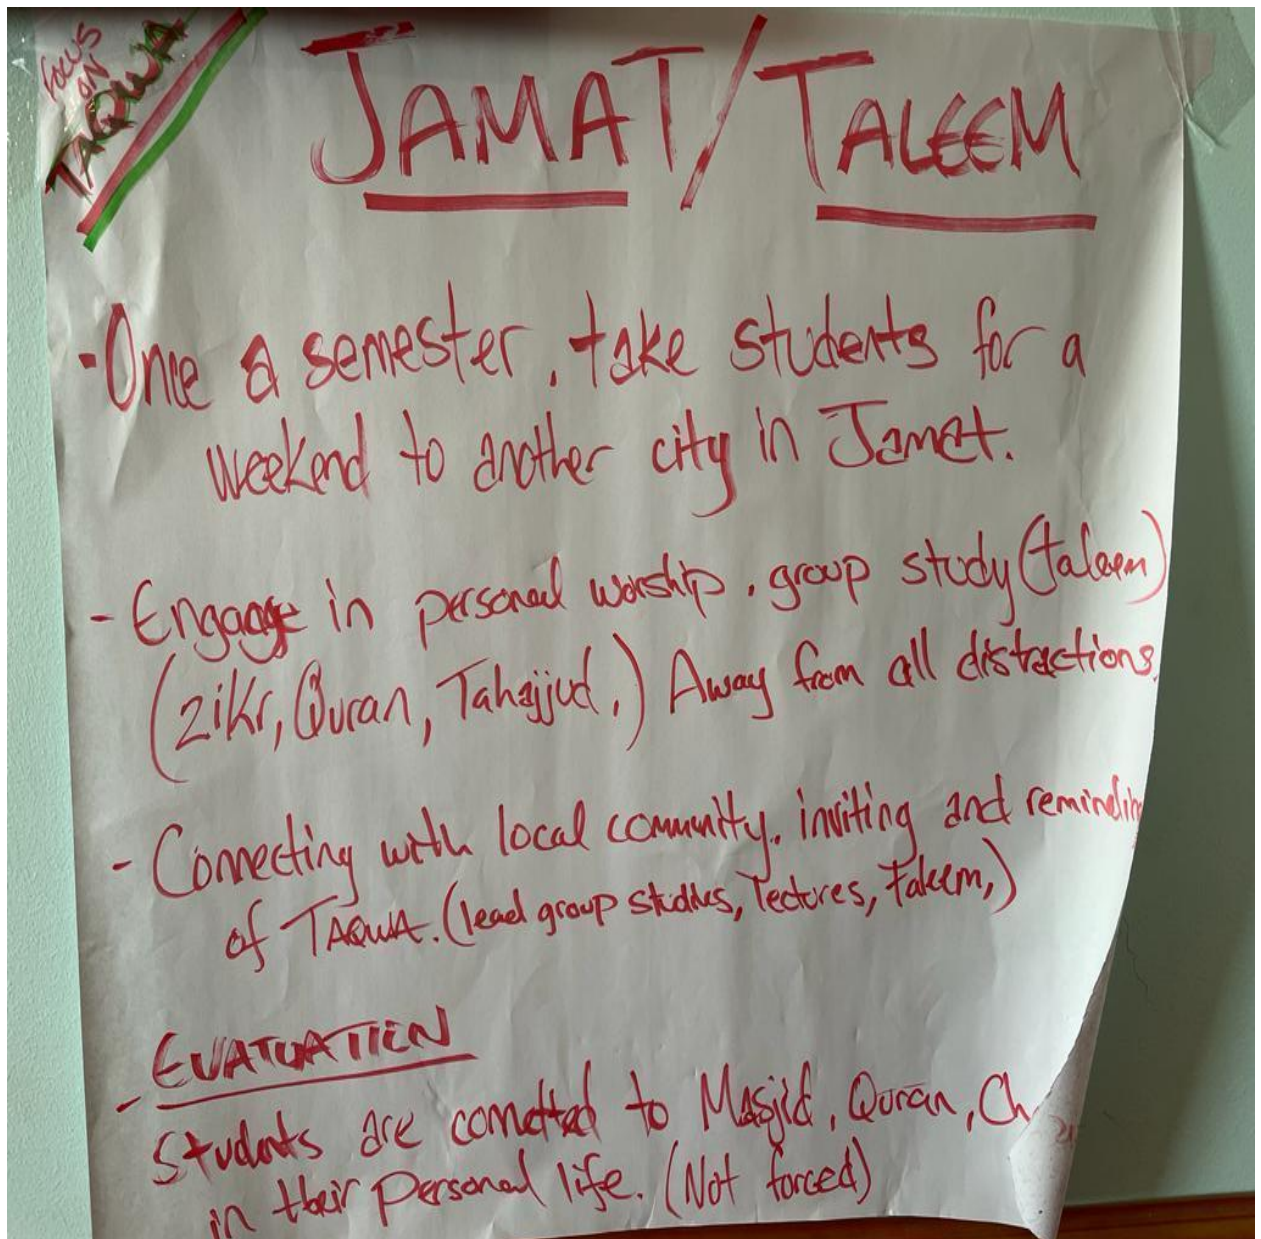 FOCUS
ON
TAQWA
JAMAT/TALEEM
- Once a semester, take students for a
weekend to another city in Jamat.
- Engage in personal worship, group study (taleem)
(zikr, Quran, Tahajjud,) Away from all distractions,
- Connecting with local community, inviting and
of TAQWA. (lead group studies, lectures, taleem,)
- EVALUATION
Students are comitted to Masjid, Quran,
in their personal life. (Not forced)